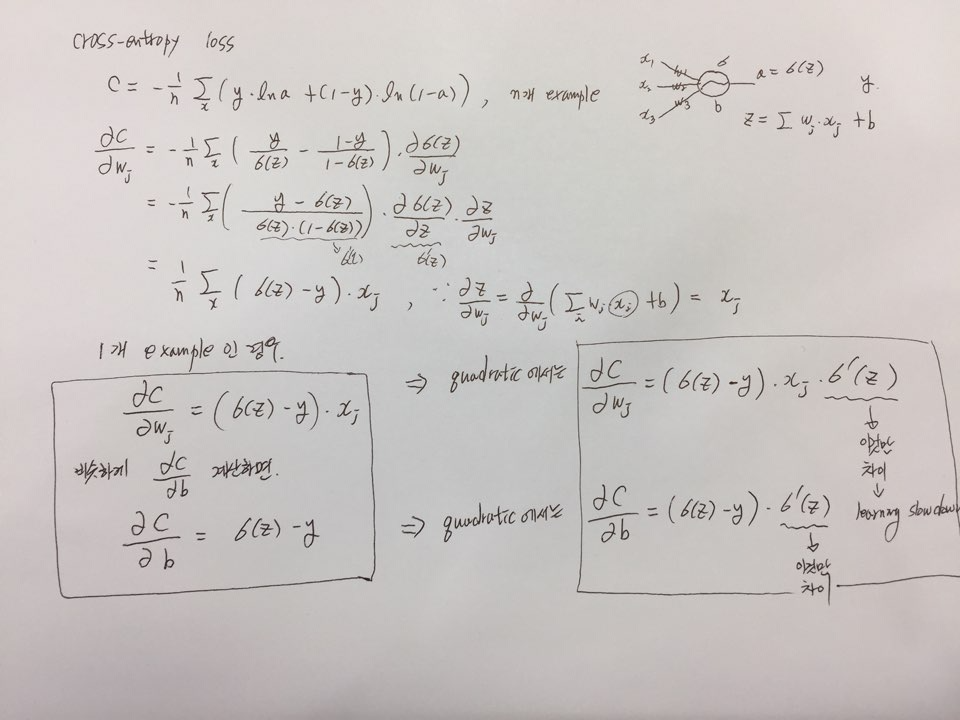 cross-entropy loss
C = -1/n Σ_x (y·ln a + (1-y)·ln(1-a)) , n개 example
x₁ x₂ x₃ w₁ w₂ w₃ σ b a = σ(z) y
z = Σ w_j·x_j + b
∂C/∂w_j = -1/n Σ_x ( y/σ(z) - (1-y)/(1-σ(z)) )·∂σ(z)/∂w_j
= -1/n Σ_x ( (y-σ(z))/(σ(z)·(1-σ(z))) )·∂σ(z)/∂z · ∂z/∂w_j
σ'(z) σ'(z)
= 1/n Σ_x (σ(z)-y)·x_j , ∵ ∂z/∂w_j = ∂/∂w_j (Σ_i w_i x_i + b) = x_j
1개 example 인 경우.
∂C/∂w_j = (σ(z)-y)·x_j
⇒ quadratic 에서는 ∂C/∂w_j = (σ(z)-y)·x_j·σ'(z)
↓
이것만
차이
↓
learning slowdown
비슷하게 ∂C/∂b 계산하면.
∂C/∂b = σ(z)-y
⇒ quadratic 에서는 ∂C/∂b = (σ(z)-y)·σ'(z)
↓
이것만
차이